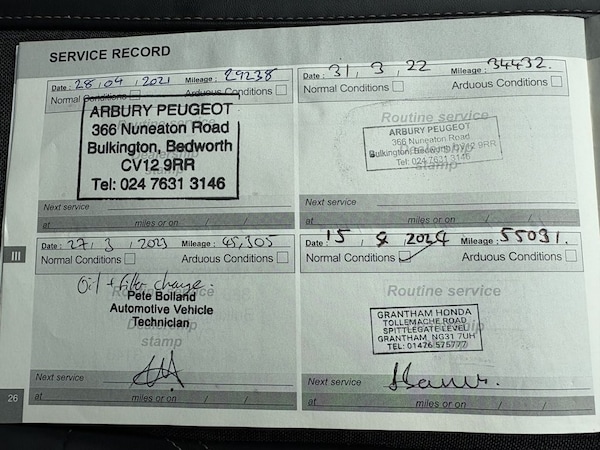 SERVICE RECORD
Date : 28 , 04 , 2021 Mileage : 29238
Normal Conditions Arduous Conditions
ARBURY PEUGEOT
366 Nuneaton Road
Bulkington, Bedworth
CV12 9RR
Tel: 024 7631 3146
Next service
at miles or on / /
Date : 31 , 3 , 22 Mileage : 34432.
Normal Conditions Arduous Conditions
Routine service
ARBURY PEUGEOT
366 Nuneaton Road
Bulkington, Bedworth CV12 9RR
Tel: 024 7631 3146
stamp
Next service
at miles or on / /
Date : 27 , 3 , 2023 Mileage : 45,305
Normal Conditions Arduous Conditions
Oil + filter change.
Pete Bolland
Automotive Vehicle
Technician
stamp
Next service
at miles or on / /
Date : 15 , 8 , 2024 Mileage : 55031.
Normal Conditions Arduous Conditions
Routine service
GRANTHAM HONDA
TOLLEMACHE ROAD
SPITTLEGATE LEVEL
GRANTHAM NG31 7UH
TEL: 01476 575777
stamp
Next service
at miles or on / /
III
26